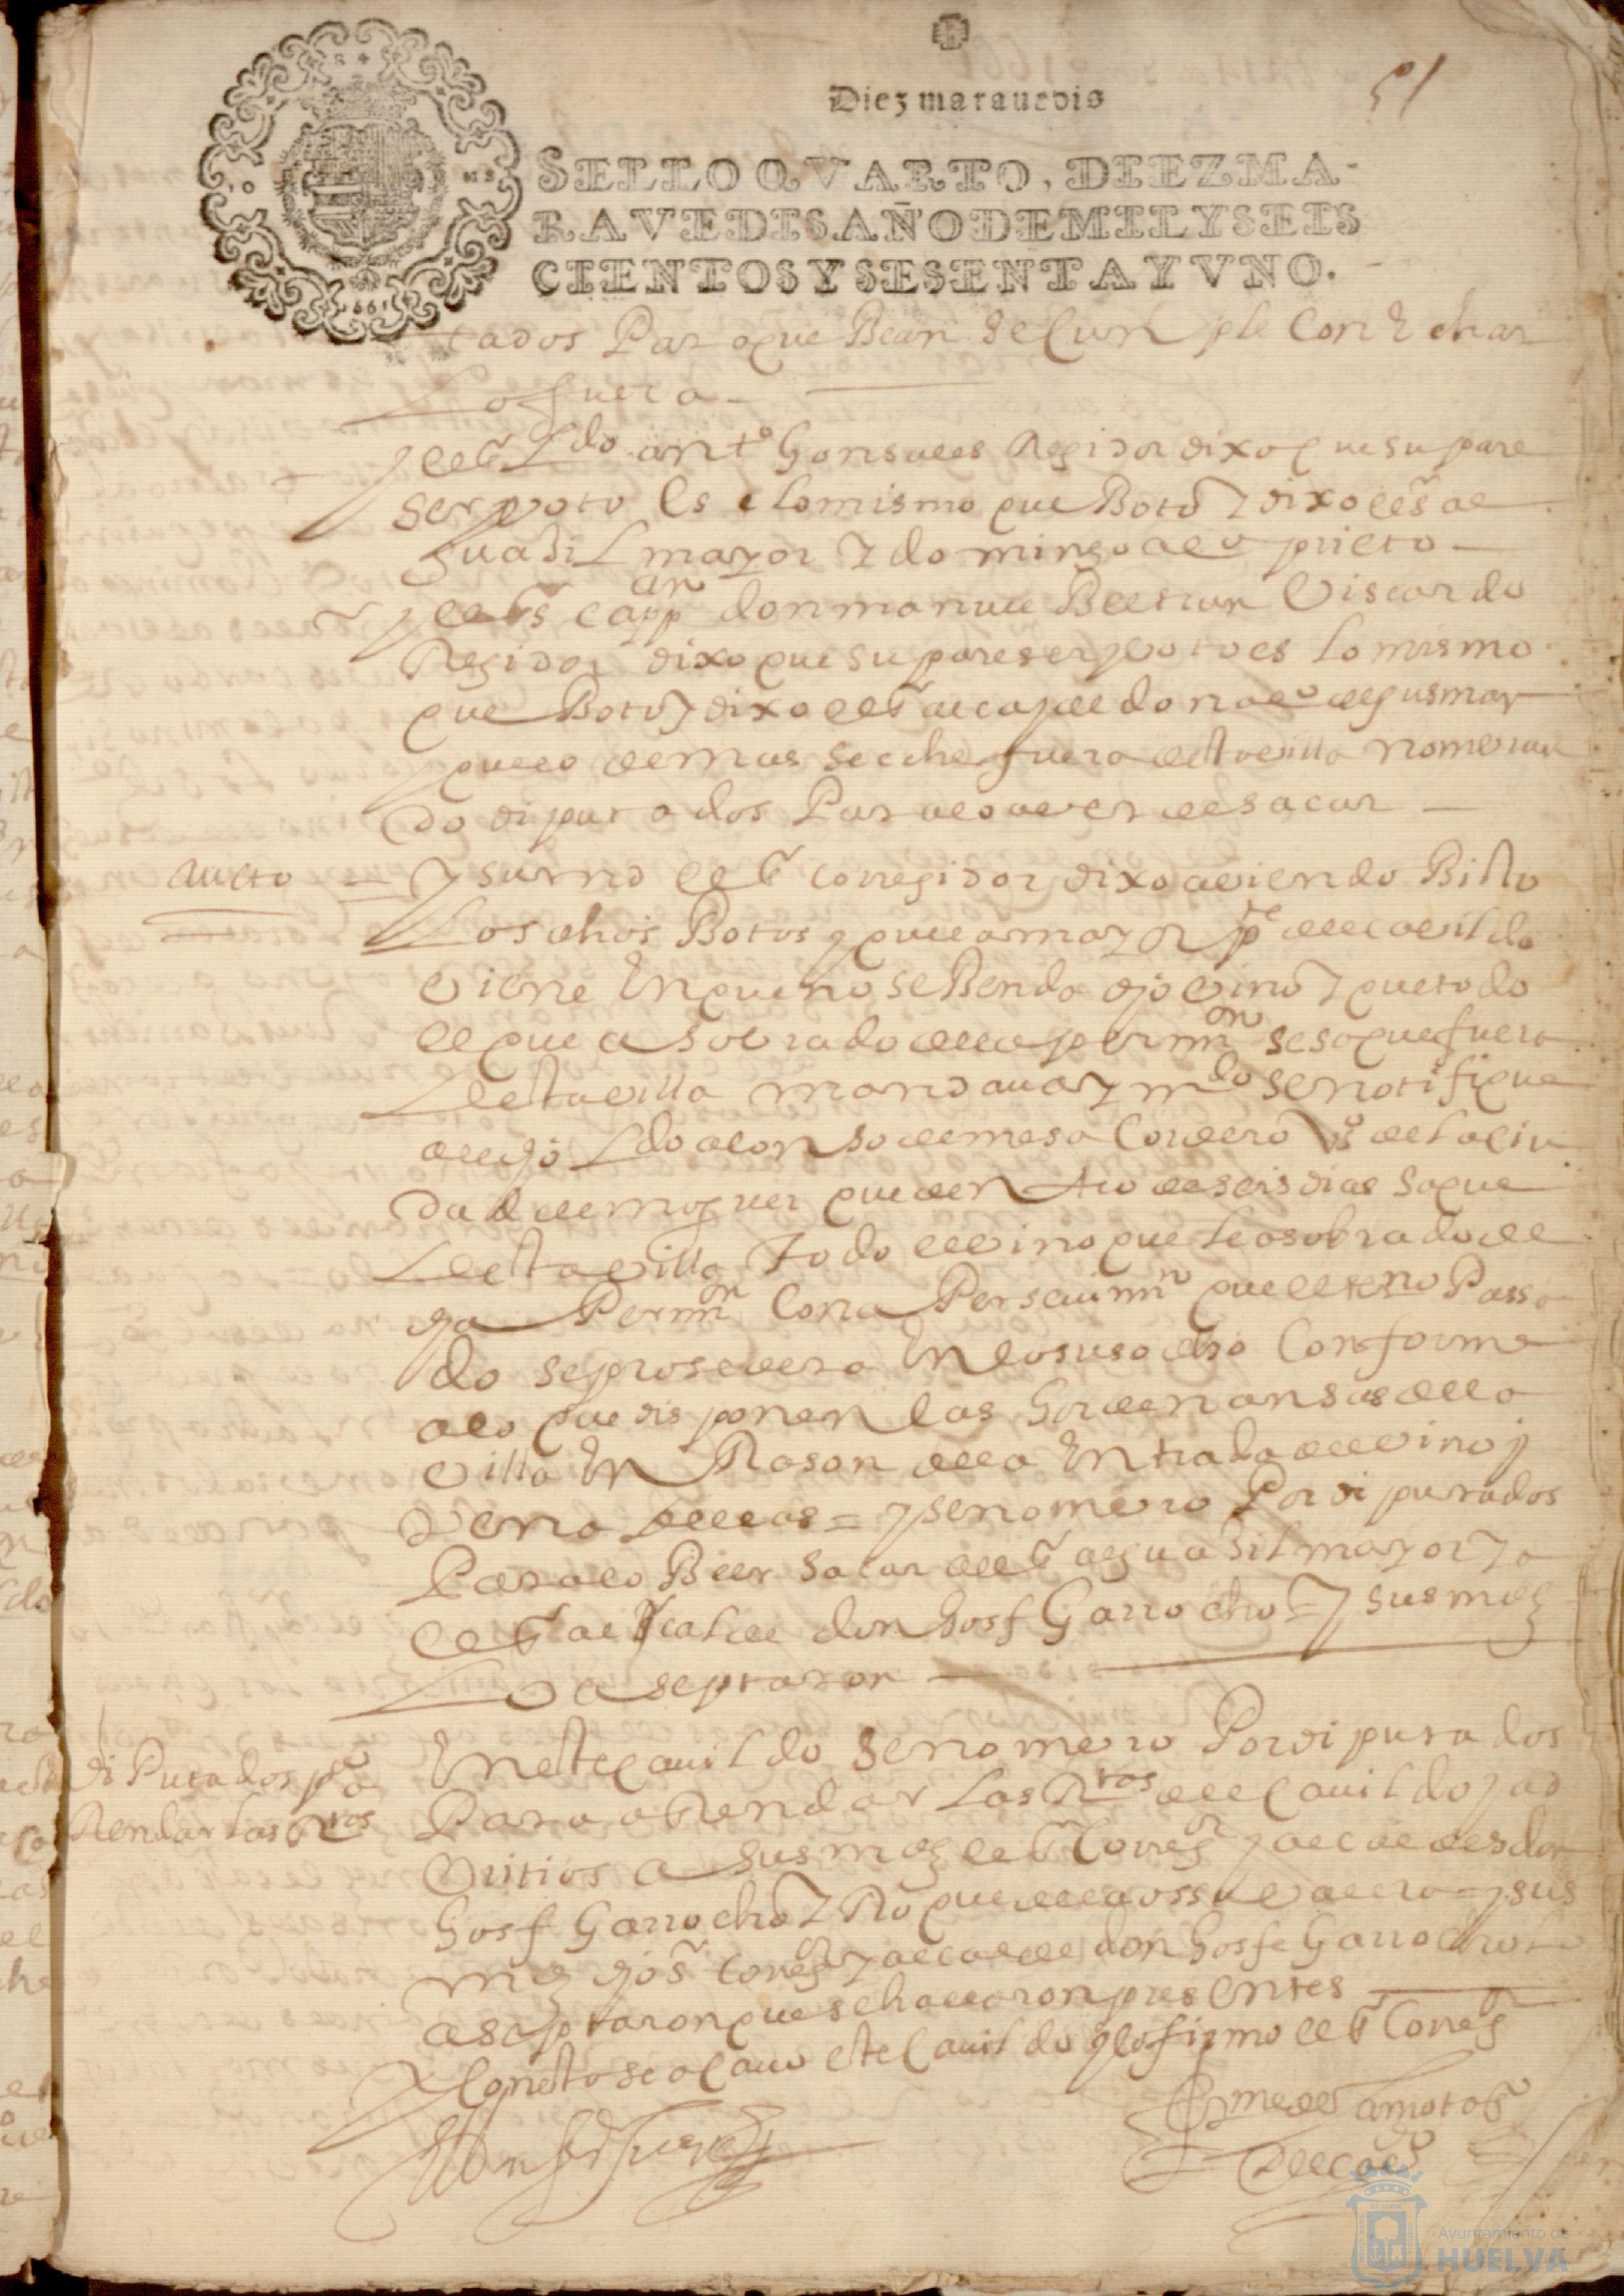 51
Diez marauedis
SELLO QVARTO, DIEZ MA-
RAVEDIS, AÑO DE MIL Y SEIS
CIENTOS Y SESENTA Y VNO.
tados Para que Bean se Cunple Con Echar
lo fuera
y el sr Ldo anto Gonsales Regidor dixo que su pare
ser y voto Es e lo mismo que Boto y dixo el sr al
guasil mayor y domingo alo prieto
y el sr cappan don manuel Beltran Viscardo
Regidor dixo que su pareser y voto es lo mismo
que Boto y dixo el sr alcayde don alo de gusman
que lo demas se eche fuera desta villa nombran
do diputados Para lo aver de sacar
Aucto = Y su md el sr corregidor dixo aviendo Bisto
Los dhos Botos y que la mayor pte del cavildo
viene En que no se Benda dho vino y que todo
el que a sobrado de la permon se saque fuera
desta villa mandava y mdo se notifique
al dho Ldo alonso de mesa Cordero vo de la ciu
dad de moguer que dentro de seis dias saque
desta villa todo el vino que le a sobrado de
dha Permon Con a Persevimo que el termo Passa
do se prosedera En lo susodho Conforme
a lo que disponen las hordenansas de la
villa En Rason de la Entrada del vino y
venta dellas = y se nombro Por diputados
Para lo Beer sacar al sr alguasil mayor y a
el sr alcalde don Josf Garrocho = y sus mds
Lo aseptaron
di Putados pa a
Rendar las Rtas
En este Cavildo se nombro Por diputados
Para a Rendar las Rtas del Cavildo y ad
vitios a sus mds el sr Corregr y alcaldes don
Josf Garrocho y Roque de la ossa valero = y sus
mds dhos srs Corregr y alcalde don Josfe Garrocho lo
aseptaron que se hallaron presentes
Y Con esto se acavo este Cavildo y lo firmo el sr Corregr
Ayuntamiento de
HUELVA